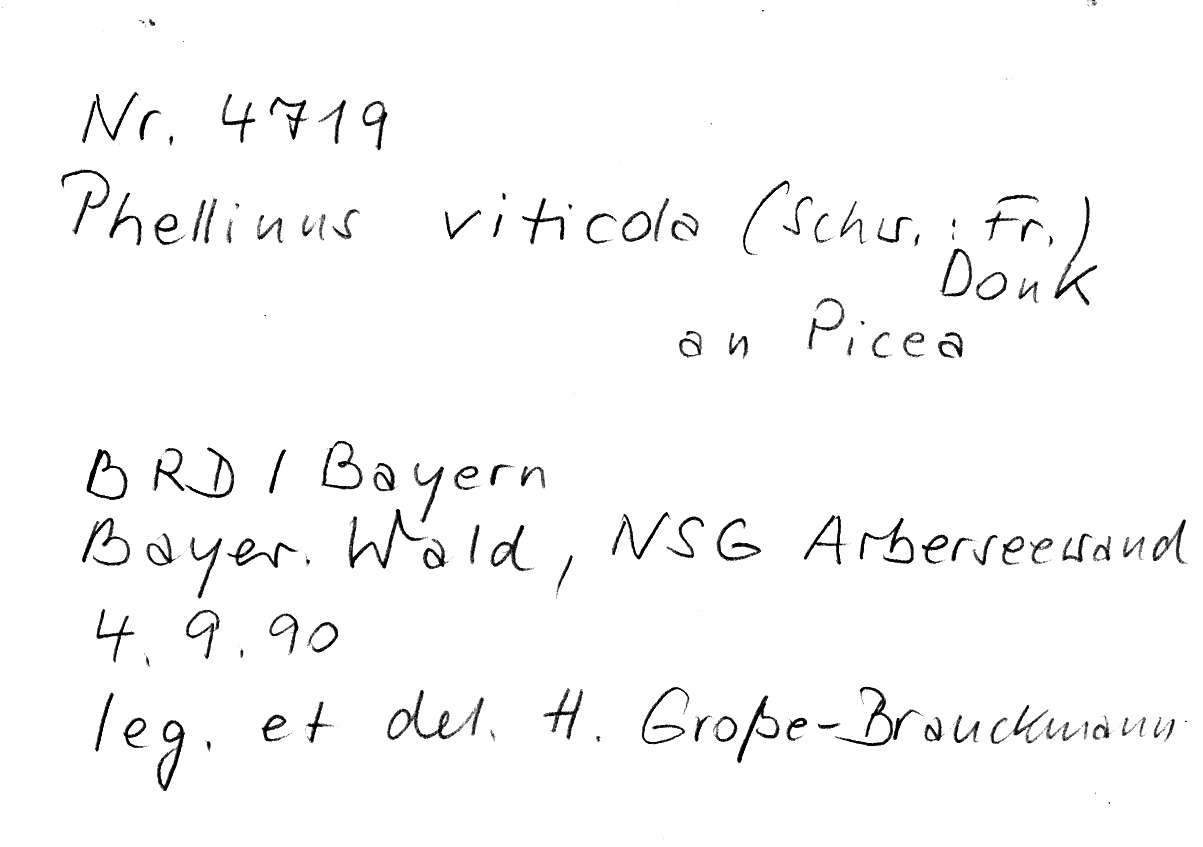 Nr. 4719
Phellinus viticola (Schw. : Fr.)
Donk
an Picea
BRD / Bayern
Bayer. Wald, NSG Arberseewand
4. 9. 90
leg. et det. H. Große-Brauckmann